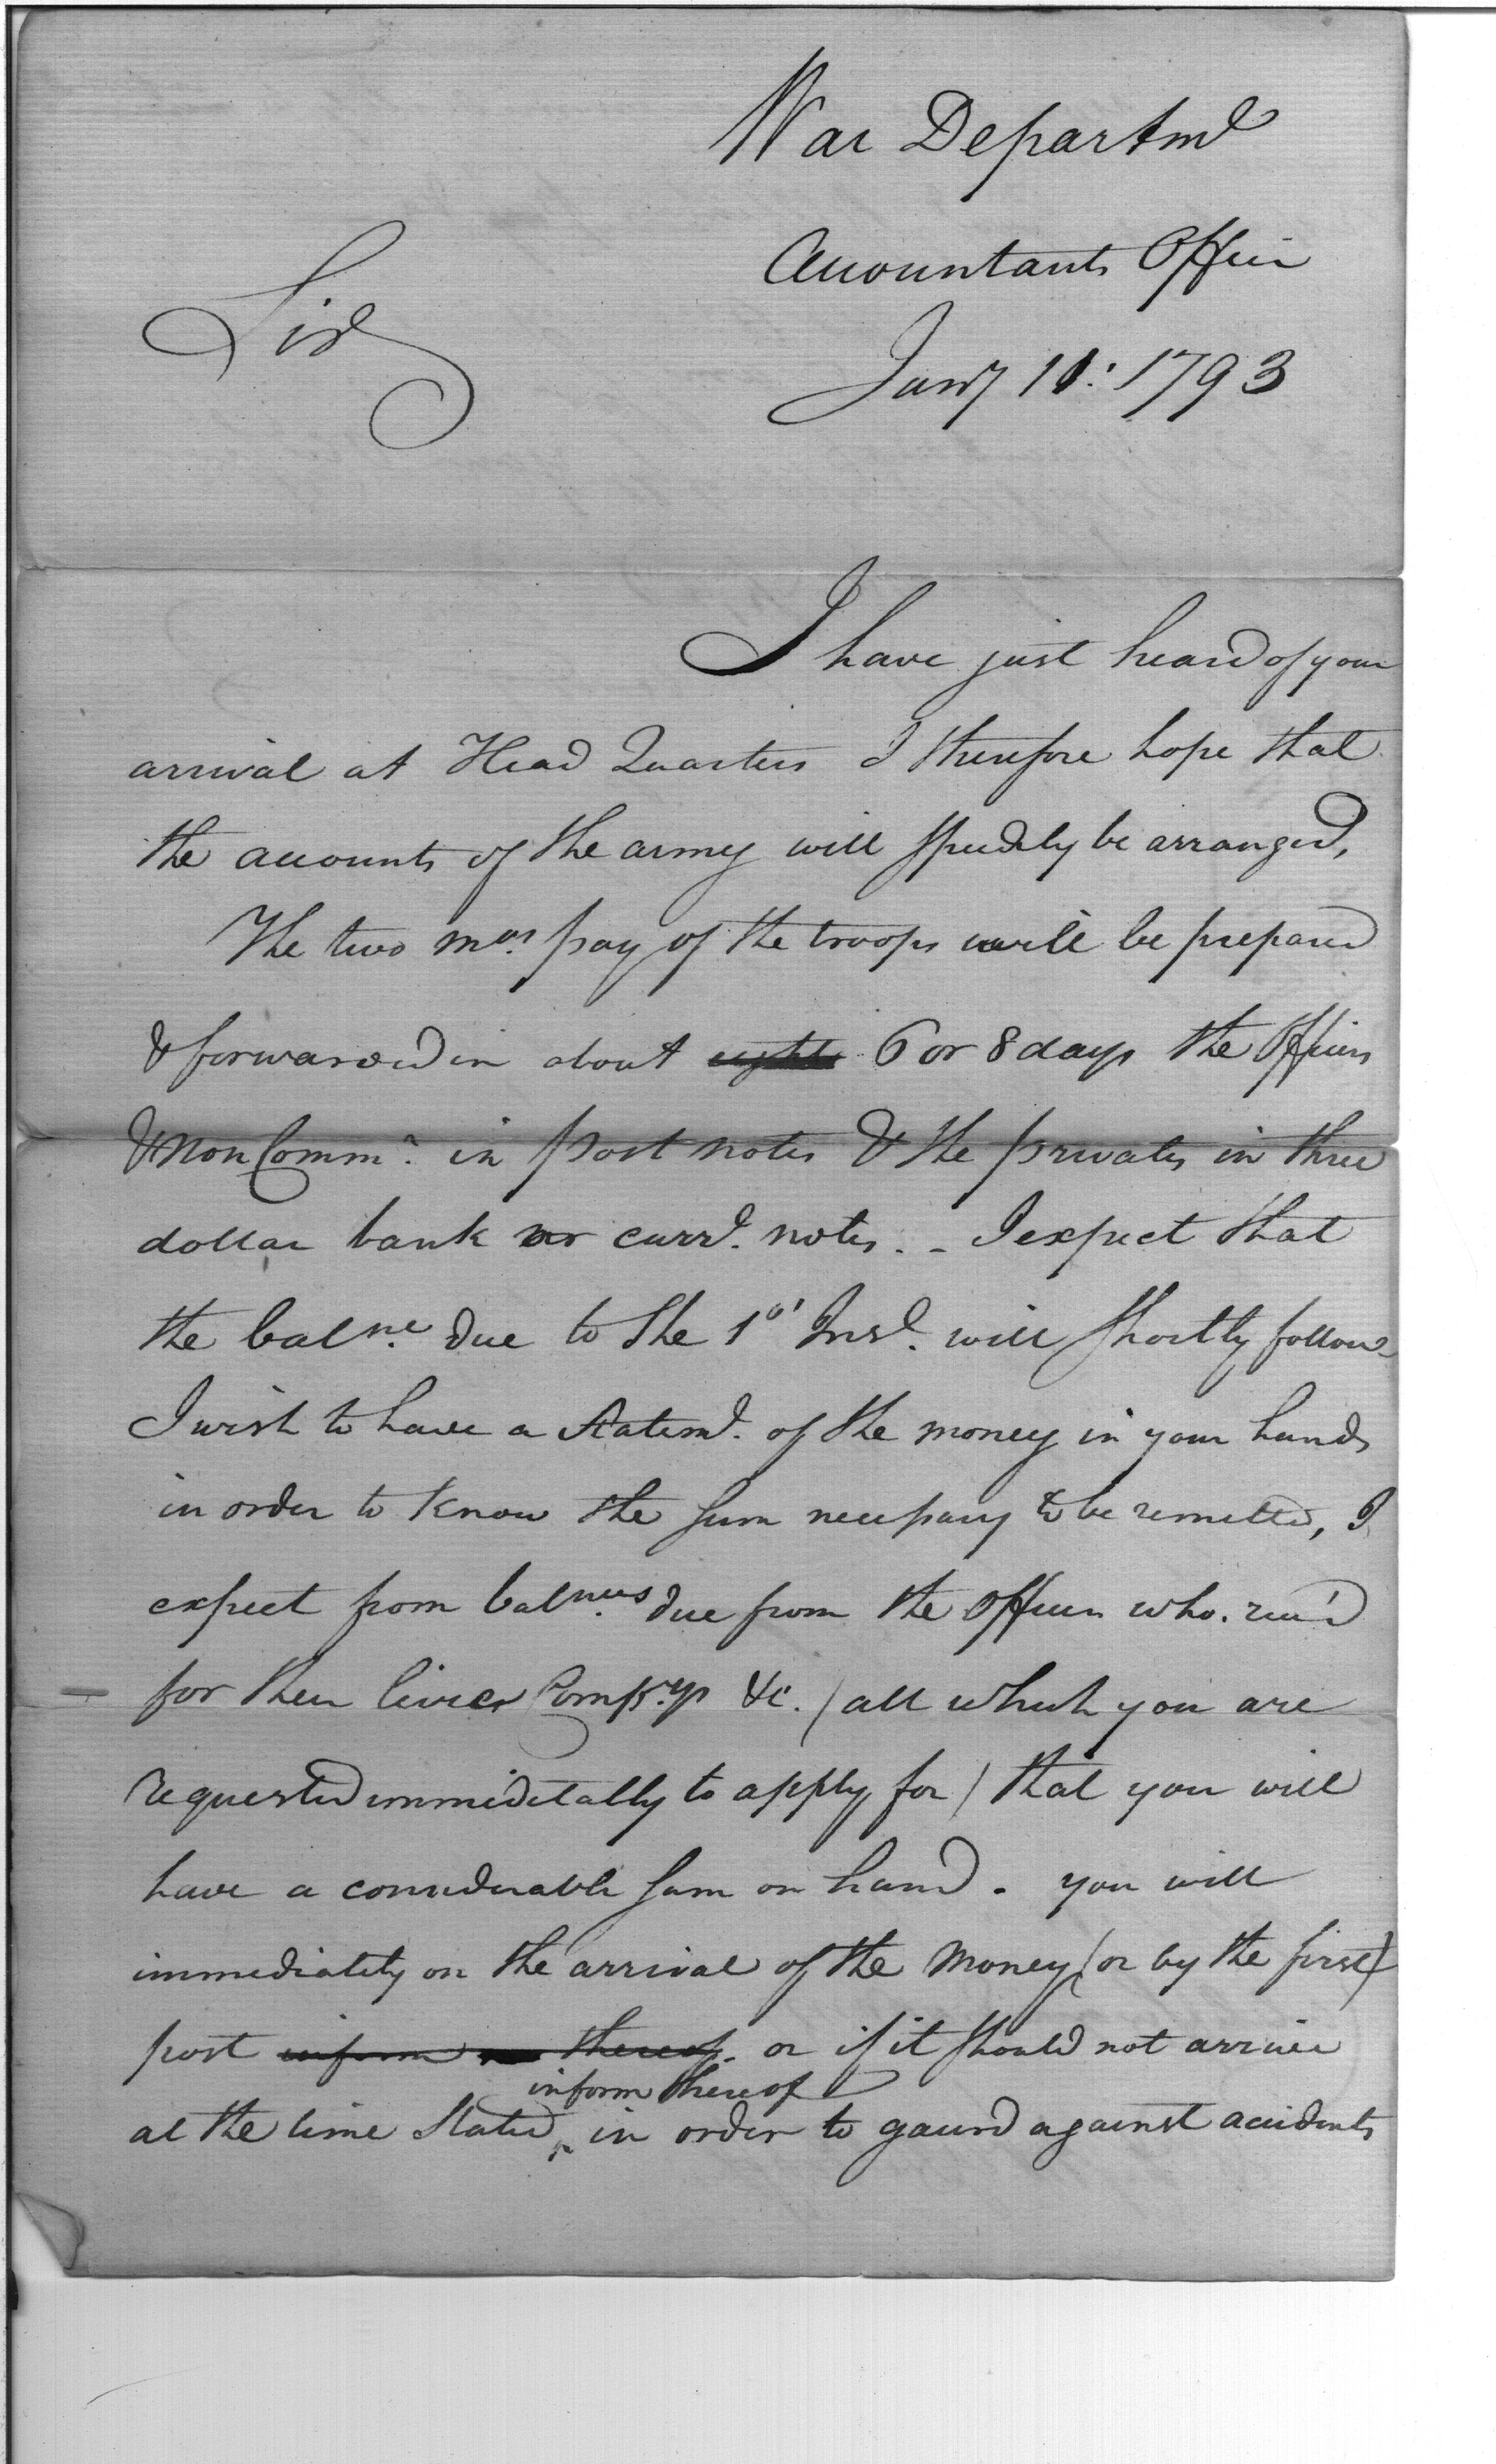 War Departmt
Accountants Office
Sir
Jany 11: 1793
I have just heard of your
arrival at Head Quarters I therefore hope that
the accounts of the army will speedily be arranged,
The two mos. pay of the troops will be prepared
& forwarded in about eight 6 or 8 days the Officers
& Non Commd. in post notes & the privates in three
dollar bank notes. - I expect that
the balnce. due to the 1st Inst. will shortly follow -
I wish to have a statemt. of the money in your hands
in order to know the sum necessary to be remitted, I
expect from balnces. due from the Officers who. recd
for their &c. (all which you are
requested immeditally to apply for) that you will
have a considerable sum on hand. you will
immediately on the arrival of the Money (or by the first)
post inform thereof. or if it should not arrive
inform thereof
at the time stated, in order to gaurd against accidents